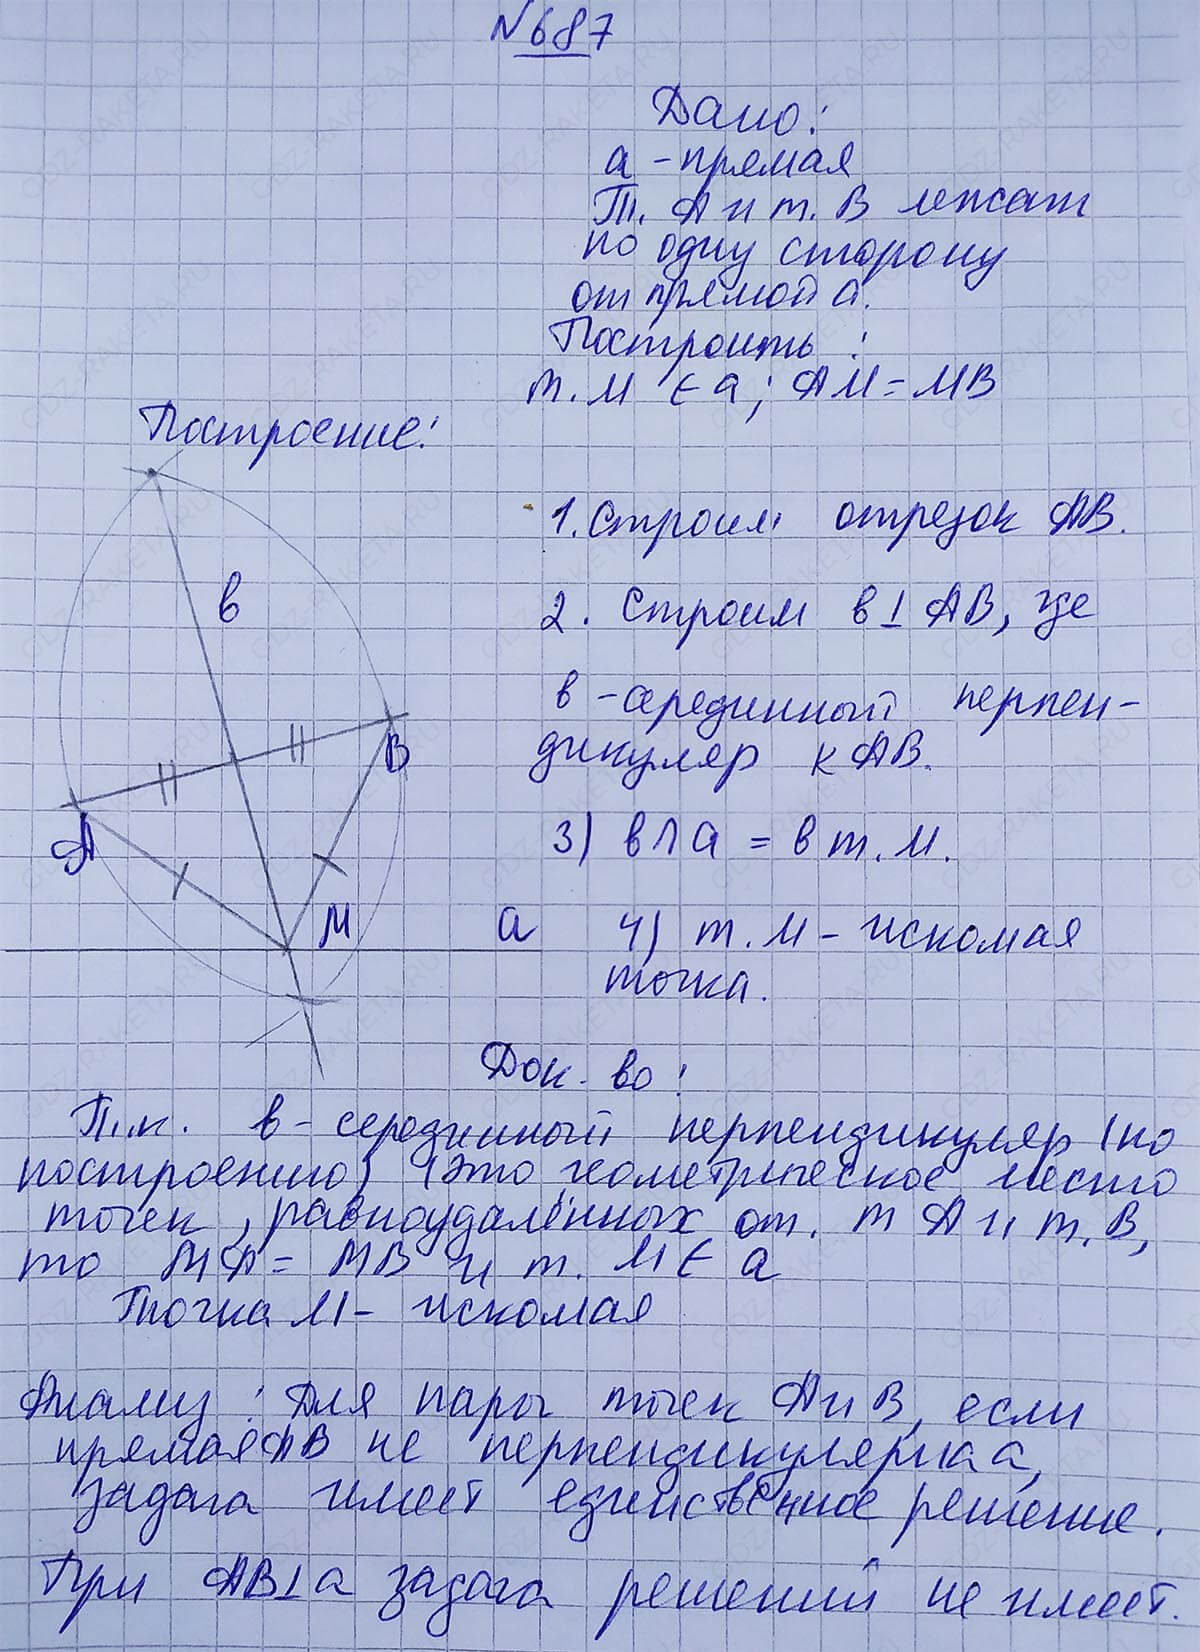 №687
Дано:
а - прямая
Т. А и т. В лежат
по одну сторону
от прямой а.
Построить:
т. М ∈ а; АМ = МВ
Построение:
1. Строим отрезок АВ.
2. Строим в ⊥ АВ, где
в
в - серединный перпен-
дикуляр к АВ.
В
3) в ∩ а = в т. М.
А
М
а
4) т. М - искомая
точка.
Док-во:
Т.к. в - серединный перпендикуляр (по
построению) (это геометрическое место
точек, равноудалённых от. т А и т. В,
то МА = МВ и т. М ∈ а
Точка М - искомая
Анализ: Для пары точек А и В, если
прямая АВ не перпендикулярна а,
задача имеет единственное решение.
При АВ⊥а задача решений не имеет.